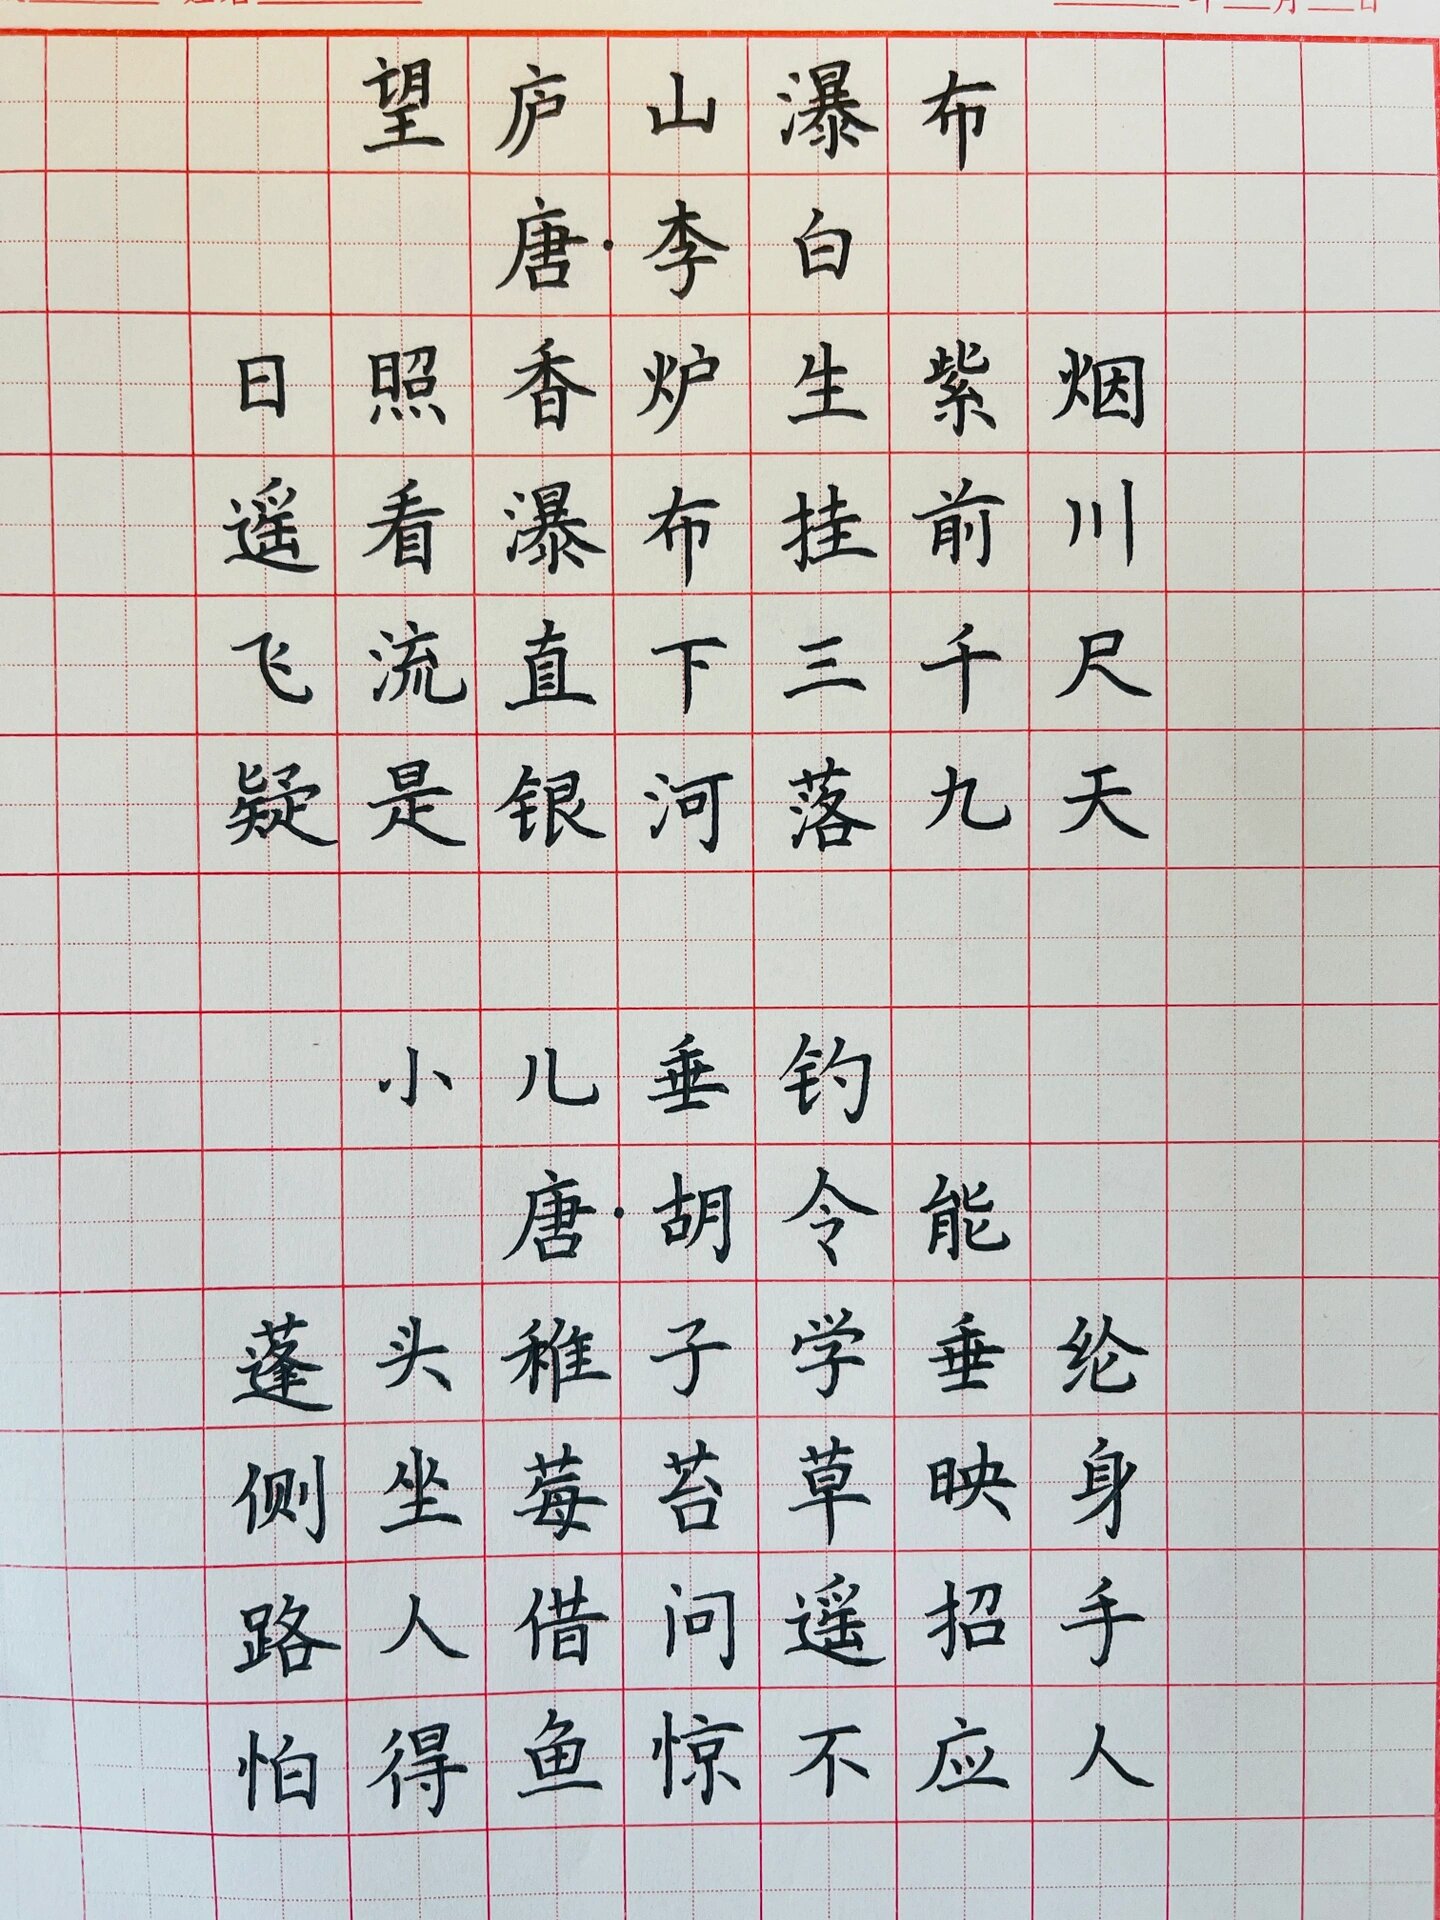 望庐山瀑布
唐·李白
日照香炉生紫烟
遥看瀑布挂前川
飞流直下三千尺
疑是银河落九天
小儿垂钓
唐·胡令能
蓬头稚子学垂纶
侧坐莓苔草映身
路人借问遥招手
怕得鱼惊不应人